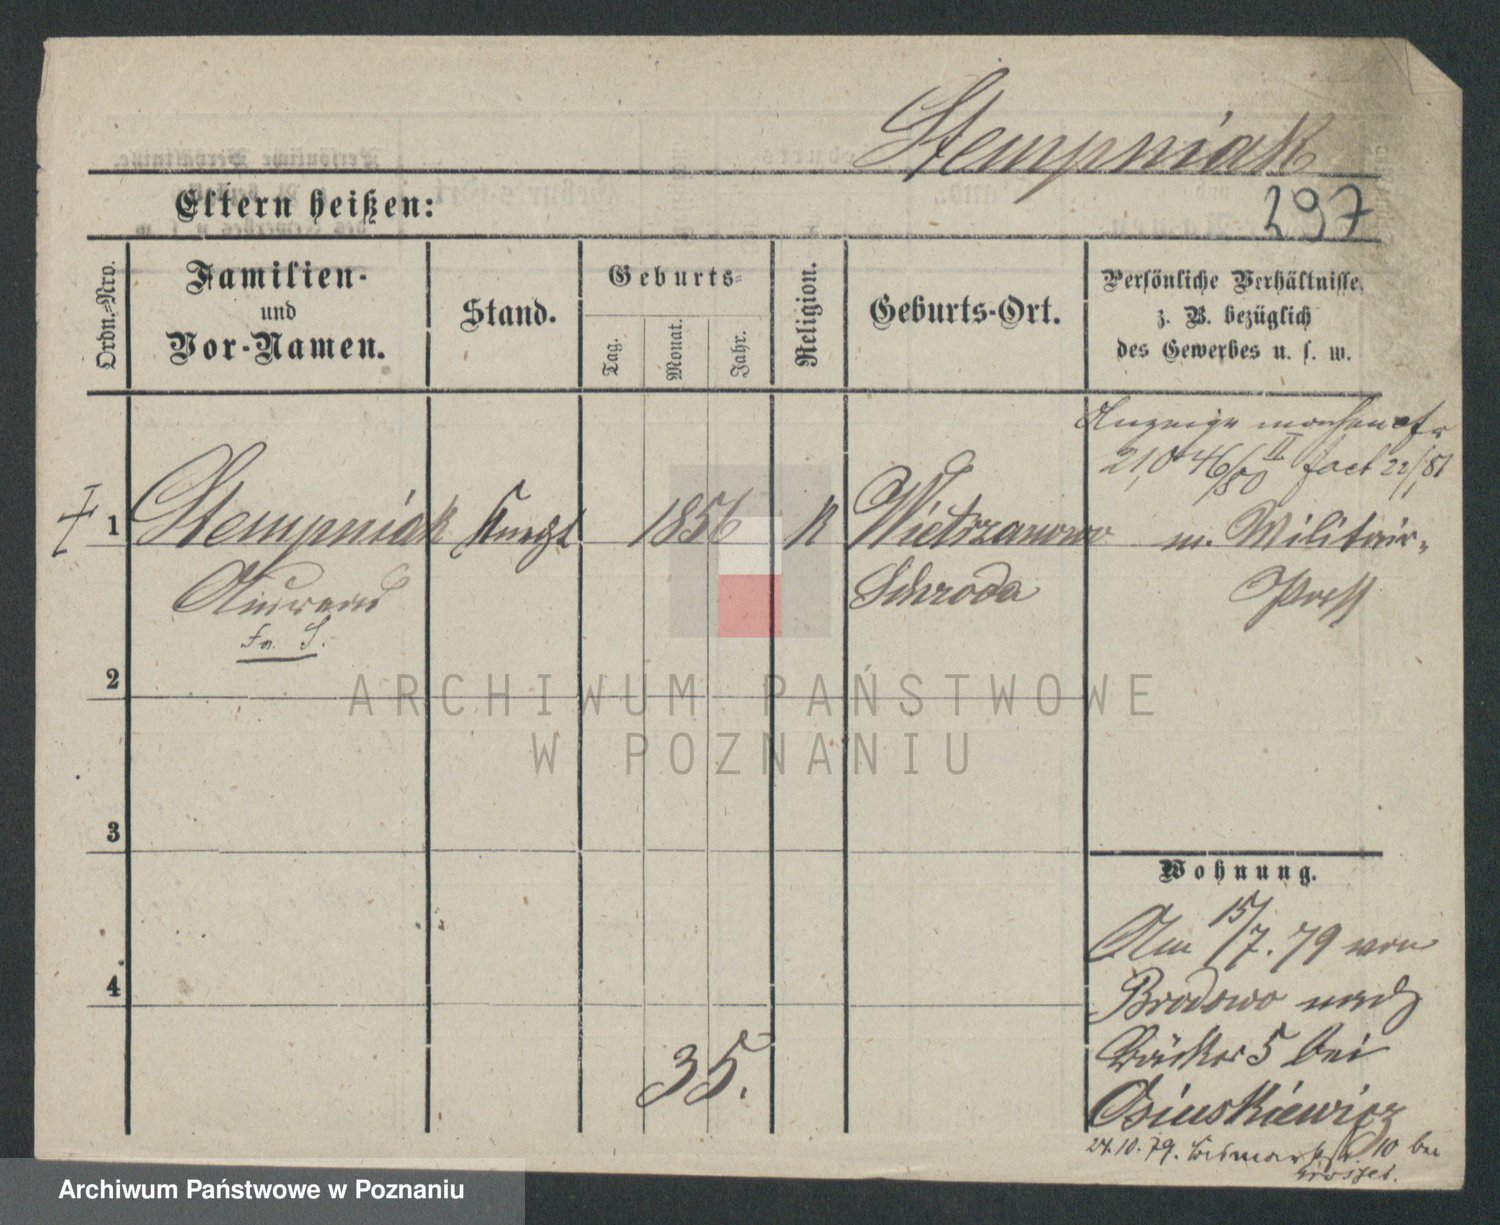 Stempniak
Eltern heißen:
297
Ordn.-Nro.
Familien-
und
Vor-Namen.
Stand.
Geburts-
Tag.
Monat.
Jahr.
Religion.
Geburts-Ort.
Persönliche Verhältnisse,
z. B. bezüglich
des Gewerbes u. s. w.
Anzeige
46/80 II 22/1 81
1
Stempniak Knecht 1856 K Wietrzanowo m. Militair-
Schroda Paß
2
3
4
35.
Wohnung.
Am 15/7. 79 von
Brodowo nach
Bäcker 5 bei
24.10.79. Bismarckstr. 10 bei
ARCHIWUM PAŃSTWOWE
W POZNANIU
Archiwum Państwowe w Poznaniu